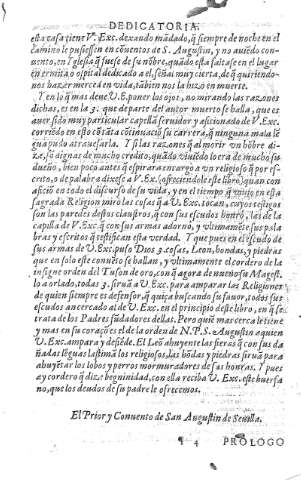 DEDICATORIA.
esta casa tiene V. Exc. dexando mãdado, q̃ siempre de noche en el
camino le pusiessen en cõuentos de S. Augustin, y no auiẽdo con-
uento, en Iglesia q̃ fuese de su nõbre, quãdo esta faltase en el lugar
en ermita o ospital dedicado a el, señal muy cierta, de q̃ quiriendo-
nos hazer merced en vida, tãbien nos la hizo en muerte.
Y en lo q̃ mas deue V. E. poner los ojos, no mirando las razones
dichas, es en la 3. que de parte del autor muerto se halla, que es
auer sido muy particular capellã seruidor y aficionado de V. Exc.
corriẽdo en esto cõ tãta cõtinuaciõ su carrera, q̃ ninguna mala lẽ
gua pudo atrauesarla. Y si las razones q̃ al morir vn hõbre di-
ze, sõ dignas de mucho credito, quãdo viuiẽdo lo era de mucho su
dueño, bien poco antes q̃ espirara encargò a vn religioso q̃ por es-
crito, o de palabra diesse a V. Ex. (ofreciendole este libro) quan con
aficiõ en todo el discurso de su vida, y en el tiempo q̃ viuio en esta
sagrada Religion mirò las cosas q̃ a V. Exc. tocan, cuyos testigos
son las paredes destos claustros, q̃ con sus escudos honrò, las de la
capilla de V. Exc. q̃ con sus armas adornò, y vltimamẽte sus pala
bras y escritos q̃ testifican esta verdad. Y que pues en el escudo de
sus armas de V. Exc. puso Dios 3. cosas, Leon, bandas, y piedras
que en solo este conuẽto se hallan, y vltimamente el cordero de la
insigne orden del Tuson de oro, con q̃ agora de nueuo su Magest.
lo a orlado, todas 3. siruã a V. Exc. para amparar las Religiones
de quien siempre es defensor, q̃ quiça buscando su fauor, todos sus
escudos an cercado al de V. Exc. en el principio deste libro, en q̃ se
trata de los Padres fũdadores dellas. Pero quiẽ mas cerca le tiene
y mas en su coraçõ es el de la orden de N. P. S. Augustin a quien
V. Exc. ampara y defiẽde. El Leõ abuyente las fieras q̃ con sus da
ñadas lẽguas lastimã los religiosos, las bãdas y piedras siruã para
abuyẽtar los lobos y perros mormuradores de sus honras. Y pues
ay cordero q̃ dize begninidad, con ella reciba V. Exc. este huersa
no, que los deudos de su padre le ofrecemos.
El Prior y Conuento de San Augustin de Seuilla.
¶ 4 PROLOGO